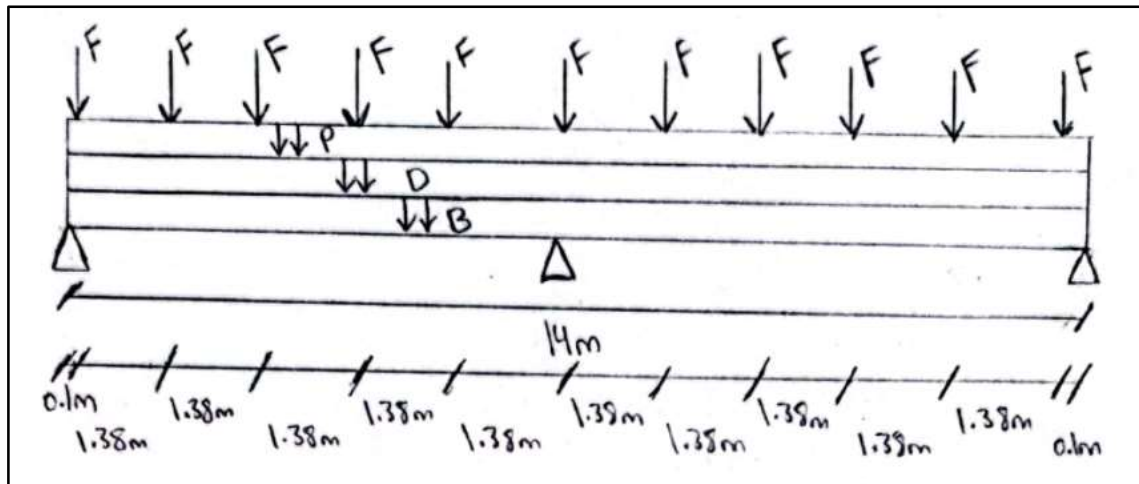 F F F F F F F F F F F
P
D
B
14m
0.1m 1.38m 1.38m 1.38m 1.38m 1.38m 1.38m 1.38m 1.38m 1.38m 1.38m 0.1m